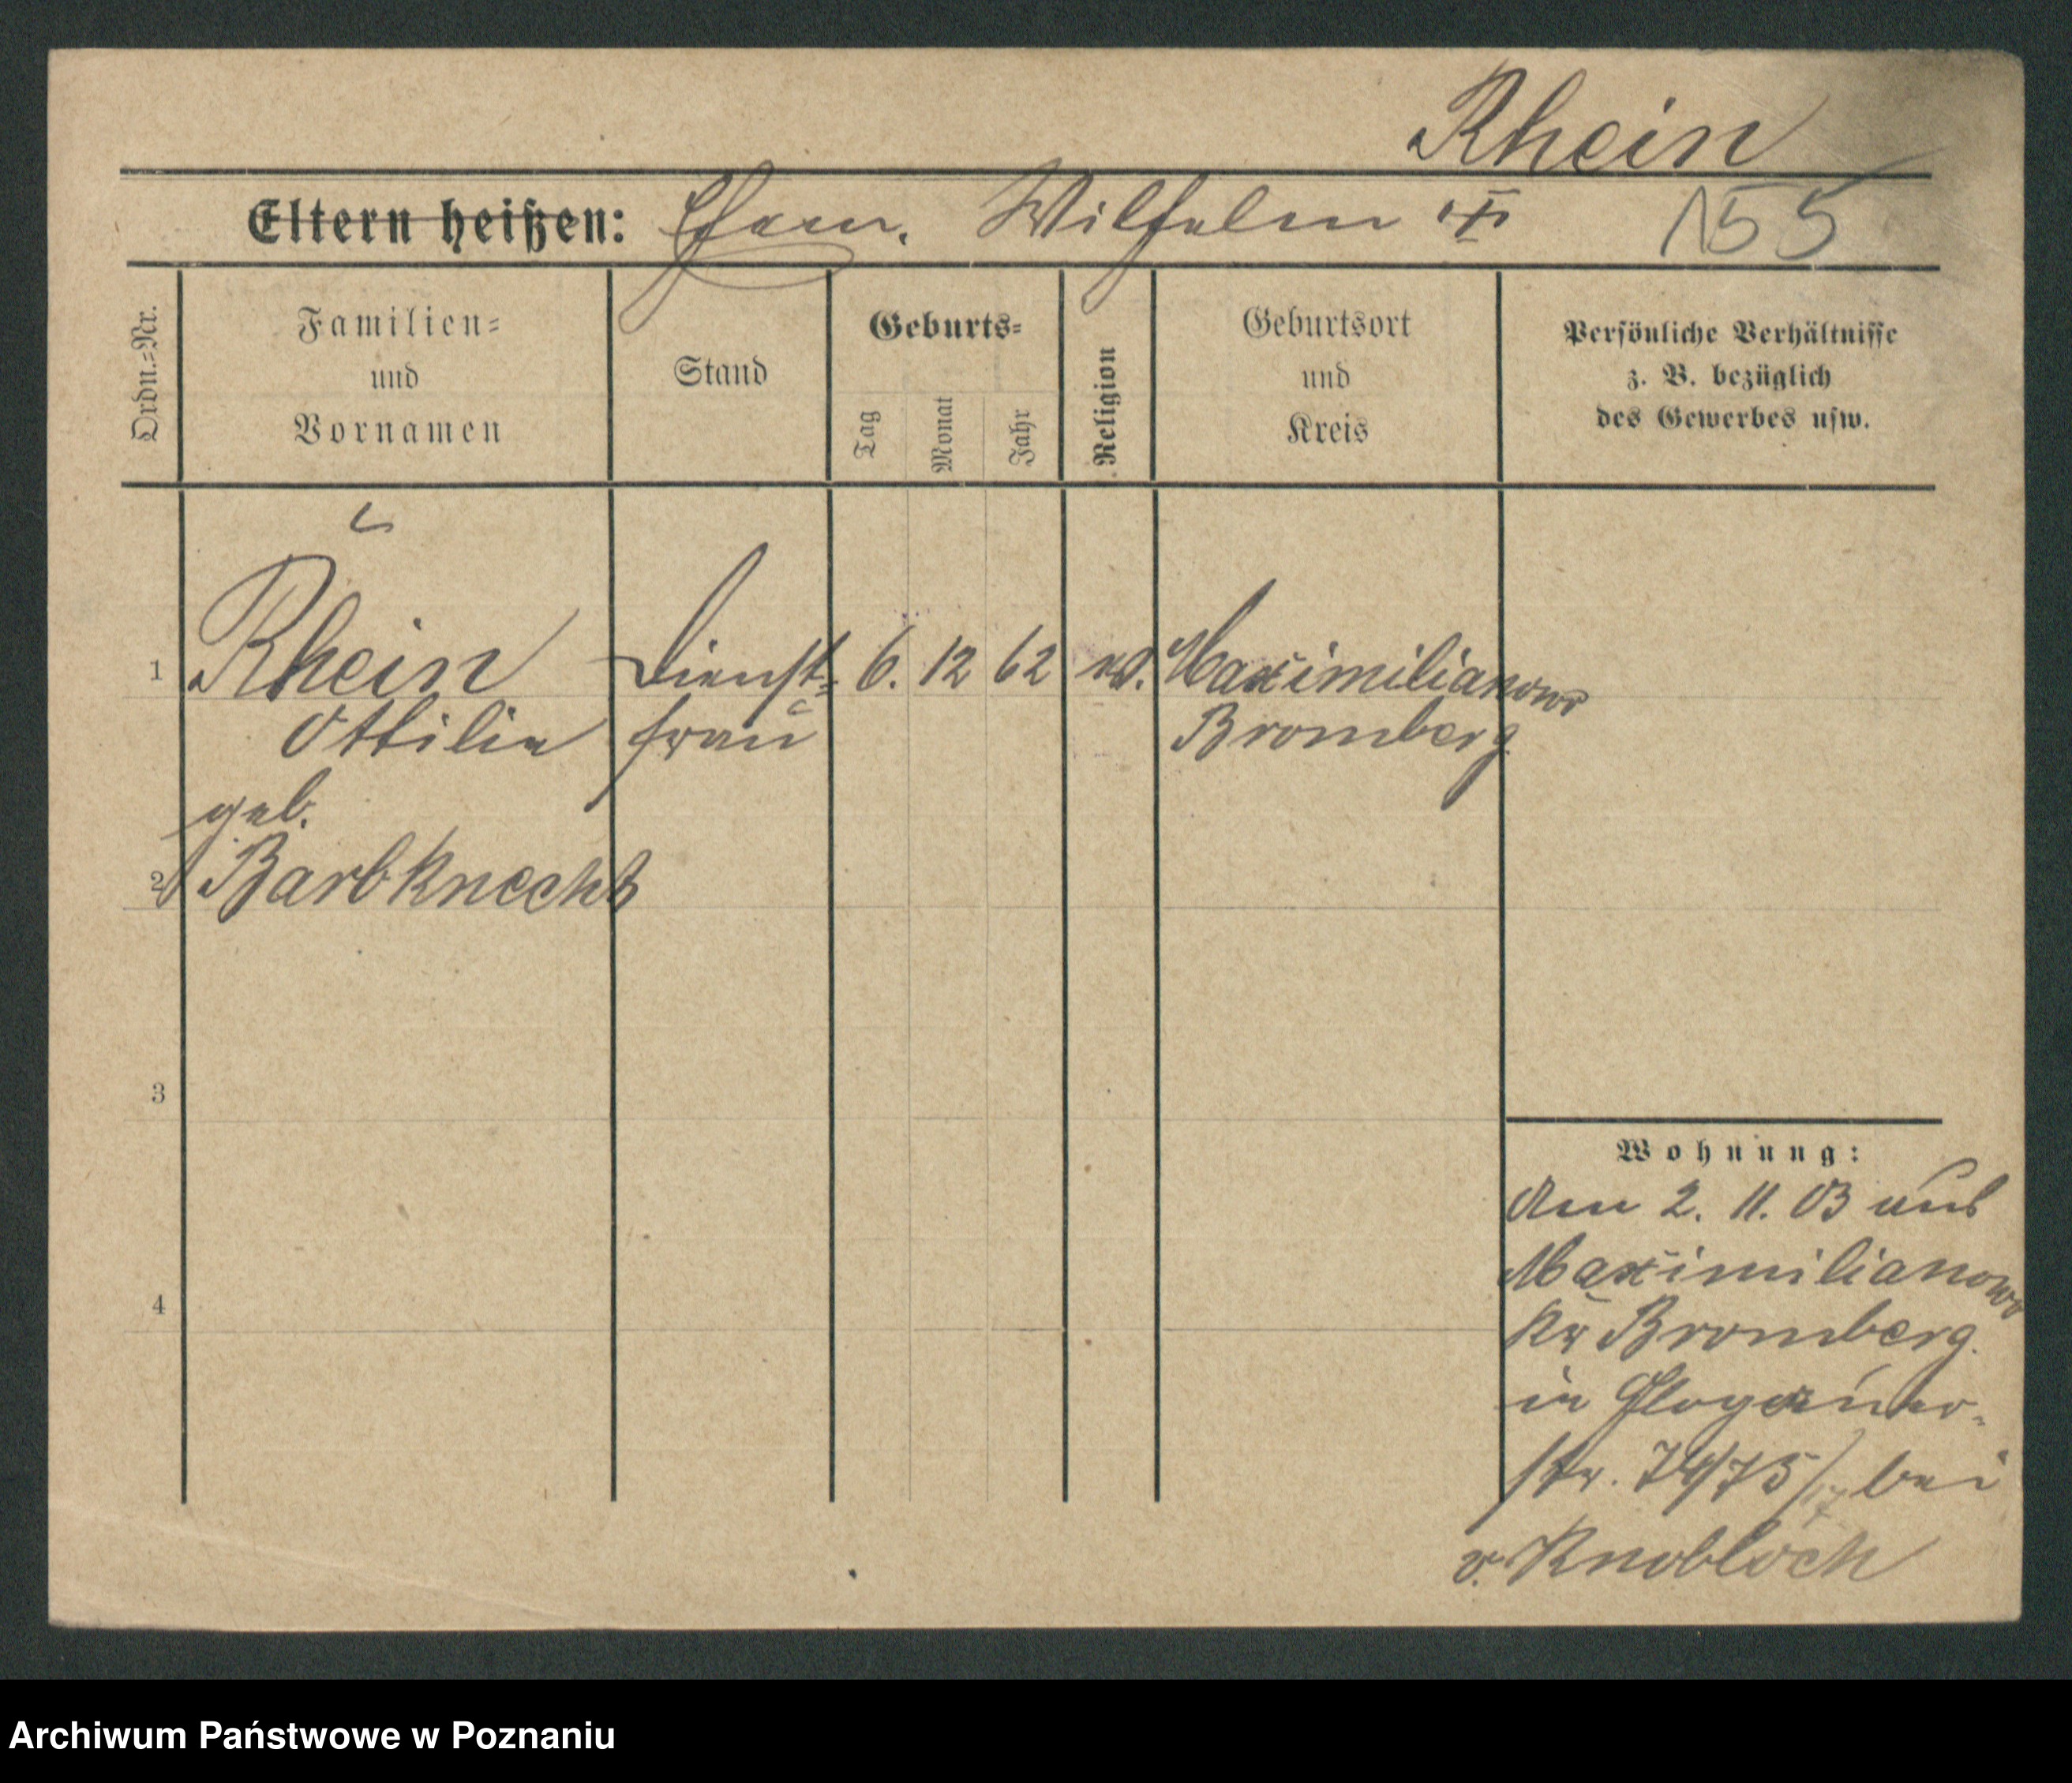 Rhein
Eltern heißen: Ehem. Wilhelm
155
Ordn.=Nr.
Familien=
und
Vornamen
Stand
Geburts=
Tag
Monat
Jahr
Religion
Geburtsort
und
Kreis
Persönliche Verhältnisse
z. B. bezüglich
des Gewerbes usw.
1 Rhein Dienst= 6. 12 62 ev. Maximilianowo
Ottilie frau Bromberg
geb.
2 Bartknecht
3
4
Wohnung:
Am 2. 11. 03 aus
Maximilianowo
Kr Bromberg.
in Glogauer=
str. 74/75/ bei
v. Knobloch
Archiwum Państwowe w Poznaniu